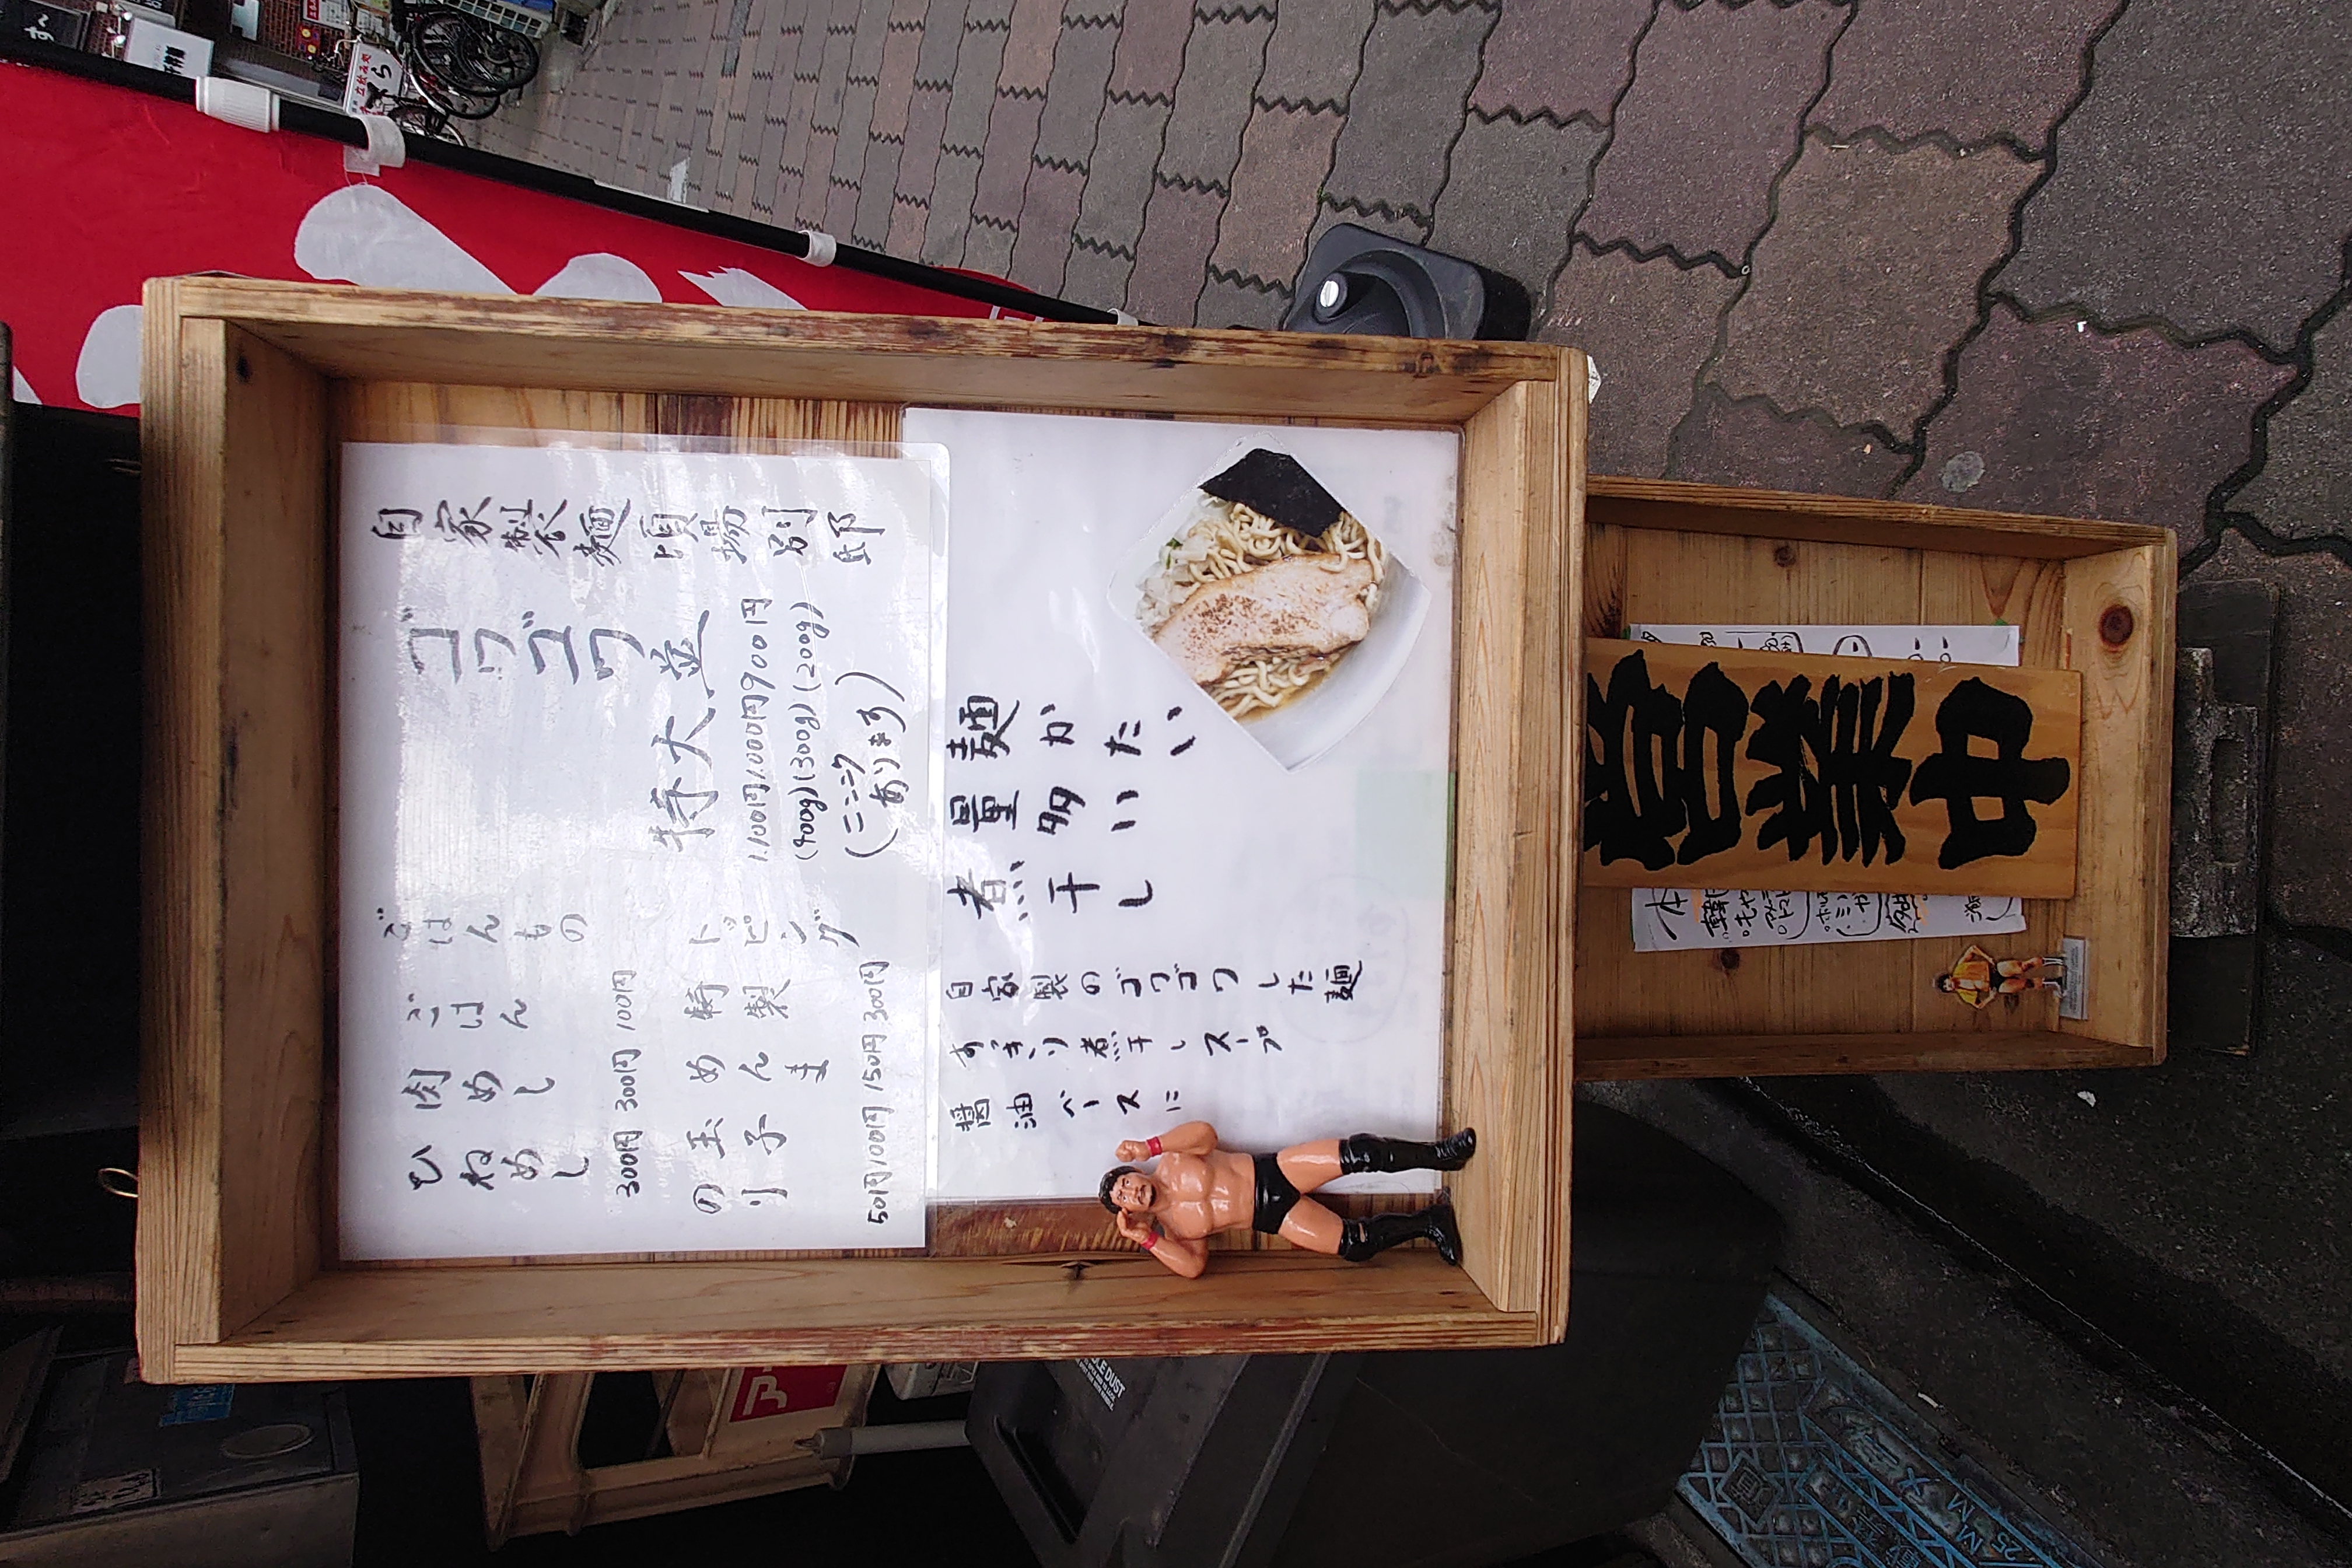 自家製麺頃場別邸
ゴワゴワ
並 900円 (200g)
大 1.000円 (300g)
特 1.100円 (400g)
(ニンニク
あります)
ごはんもの
ごはん 100円
肉めし 300円
ひねめし 300円
トッピング
特製 300円
めんま 150円
玉子 100円
のり 50円
麺かたい
量多い
煮干し
自家製のゴワゴワした麺
すっきり煮干しスープ
醤油ベースに
営業中